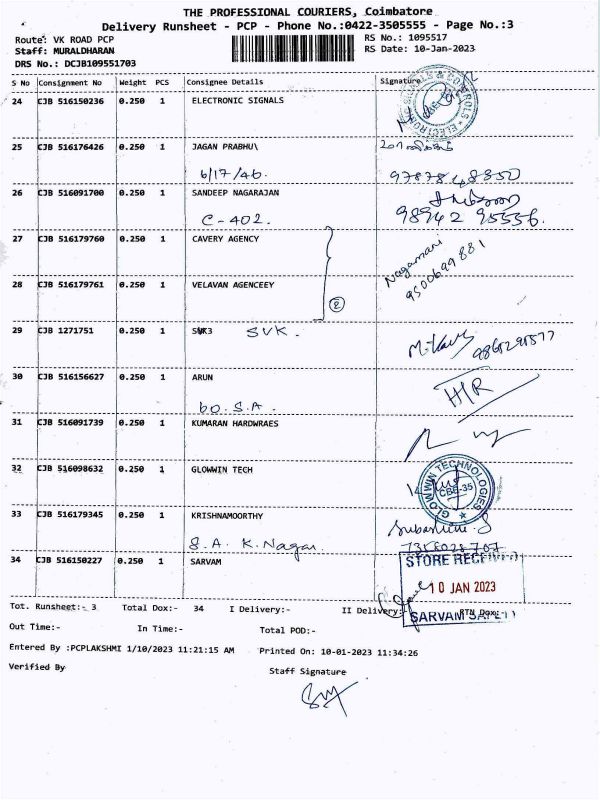 THE PROFESSIONAL COURIERS, Coimbatore
Delivery Runsheet - PCP - Phone No.:0422-3505555 - Page No.:3
Route: VK ROAD PCP
RS No.: 1095517
Staff: MURALDHARAN
RS Date: 10-Jan-2023
DRS No.: DCJB109551703
S No Consignment No Weight PCS Consignee Details Signature
24 CJB 516150236 0.250 1 ELECTRONIC SIGNALS
25 CJB 516176426 0.250 1 JAGAN PRABHU\
6/17/46.
26 CJB 516091700 0.250 1 SANDEEP NAGARAJAN
C-402. 98942 95556.
27 CJB 516179760 0.250 1 CAVERY AGENCY
Nagamani
9500699881
28 CJB 516179761 0.250 1 VELAVAN AGENCEEY
2
29 CJB 1271751 0.250 1 SVK3 SVK.
30 CJB 516156627 0.250 1 ARUN
60. S.A. H/R
31 CJB 516091739 0.250 1 KUMARAN HARDWRAES
32 CJB 516098632 0.250 1 GLOWWIN TECH
GLOWWIN TECHNOLOGIES
CBE-35
33 CJB 516179345 0.250 1 KRISHNAMOORTHY
S.A. K.Nagar. Subashini S
34 CJB 516150227 0.250 1 SARVAM
10 JAN 2023
Tot. Runsheet:- 3 Total Dox:- 34 I Delivery:- II Delivery:- RTN Dox:-
SARVAM
Out Time:- In Time:- Total POD:-
Entered By :PCPLAKSHMI 1/10/2023 11:21:15 AM Printed On: 10-01-2023 11:34:26
Verified By
Staff Signature